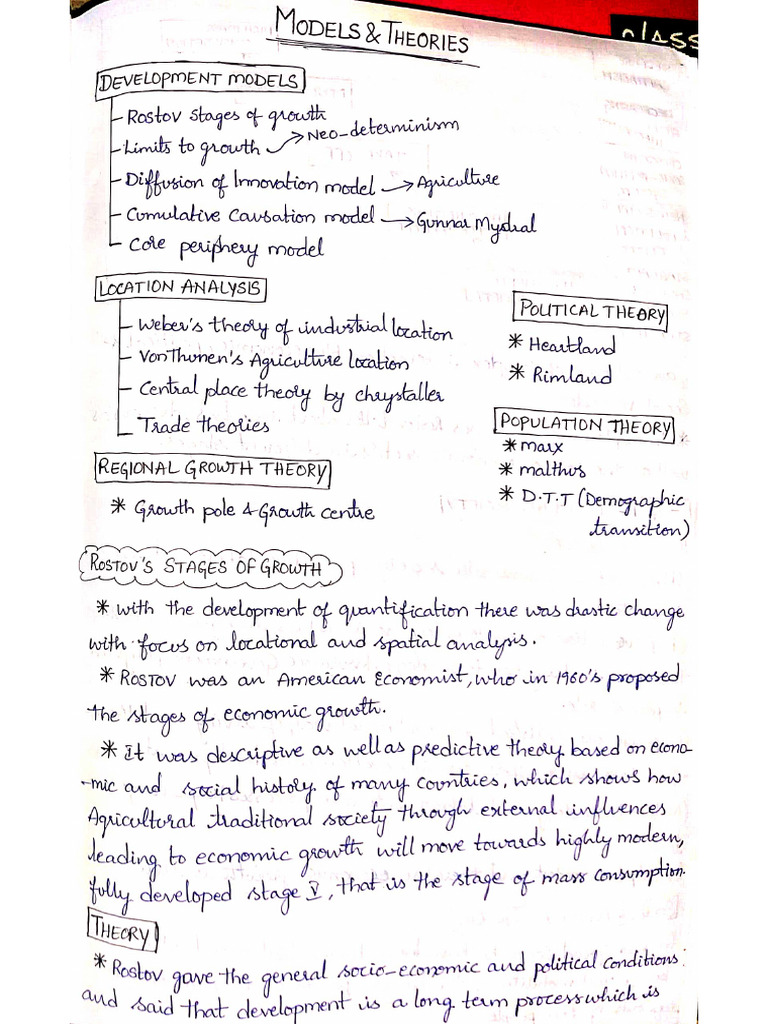 class
MODELS & THEORIES
DEVELOPMENT MODELS
Rostov stages of growth
Limits to growth → Neo-determinism
Diffusion of Innovation model → Agriculture
Cumulative Causation model → Gunnar Mydral
Core periphery model
LOCATION ANALYSIS
Weber's theory of industrial location
Von Thunen's Agriculture location
Central place theory by chrystaller
Trade theories
POLITICAL THEORY
* Heartland
* Rimland
POPULATION THEORY
* marx
* malthus
* D.T.T (Demographic
transition)
REGIONAL GROWTH THEORY
* Growth pole & Growth centre
ROSTOV'S STAGES OF GROWTH
* with the development of quantification there was drastic change
with focus on locational and spatial analysis.
* ROSTOV was an American Economist, who in 1960's proposed
the stages of economic growth.
* It was descriptive as well as predictive theory based on econo-
-mic and social history of many countries, which shows how
Agricultural traditional society through external influences
leading to economic growth will move towards highly modern,
fully developed stage V, that is the stage of mass consumption.
THEORY
* Rostov gave the general socio-economic and political conditions
and said that development is a long term process which is